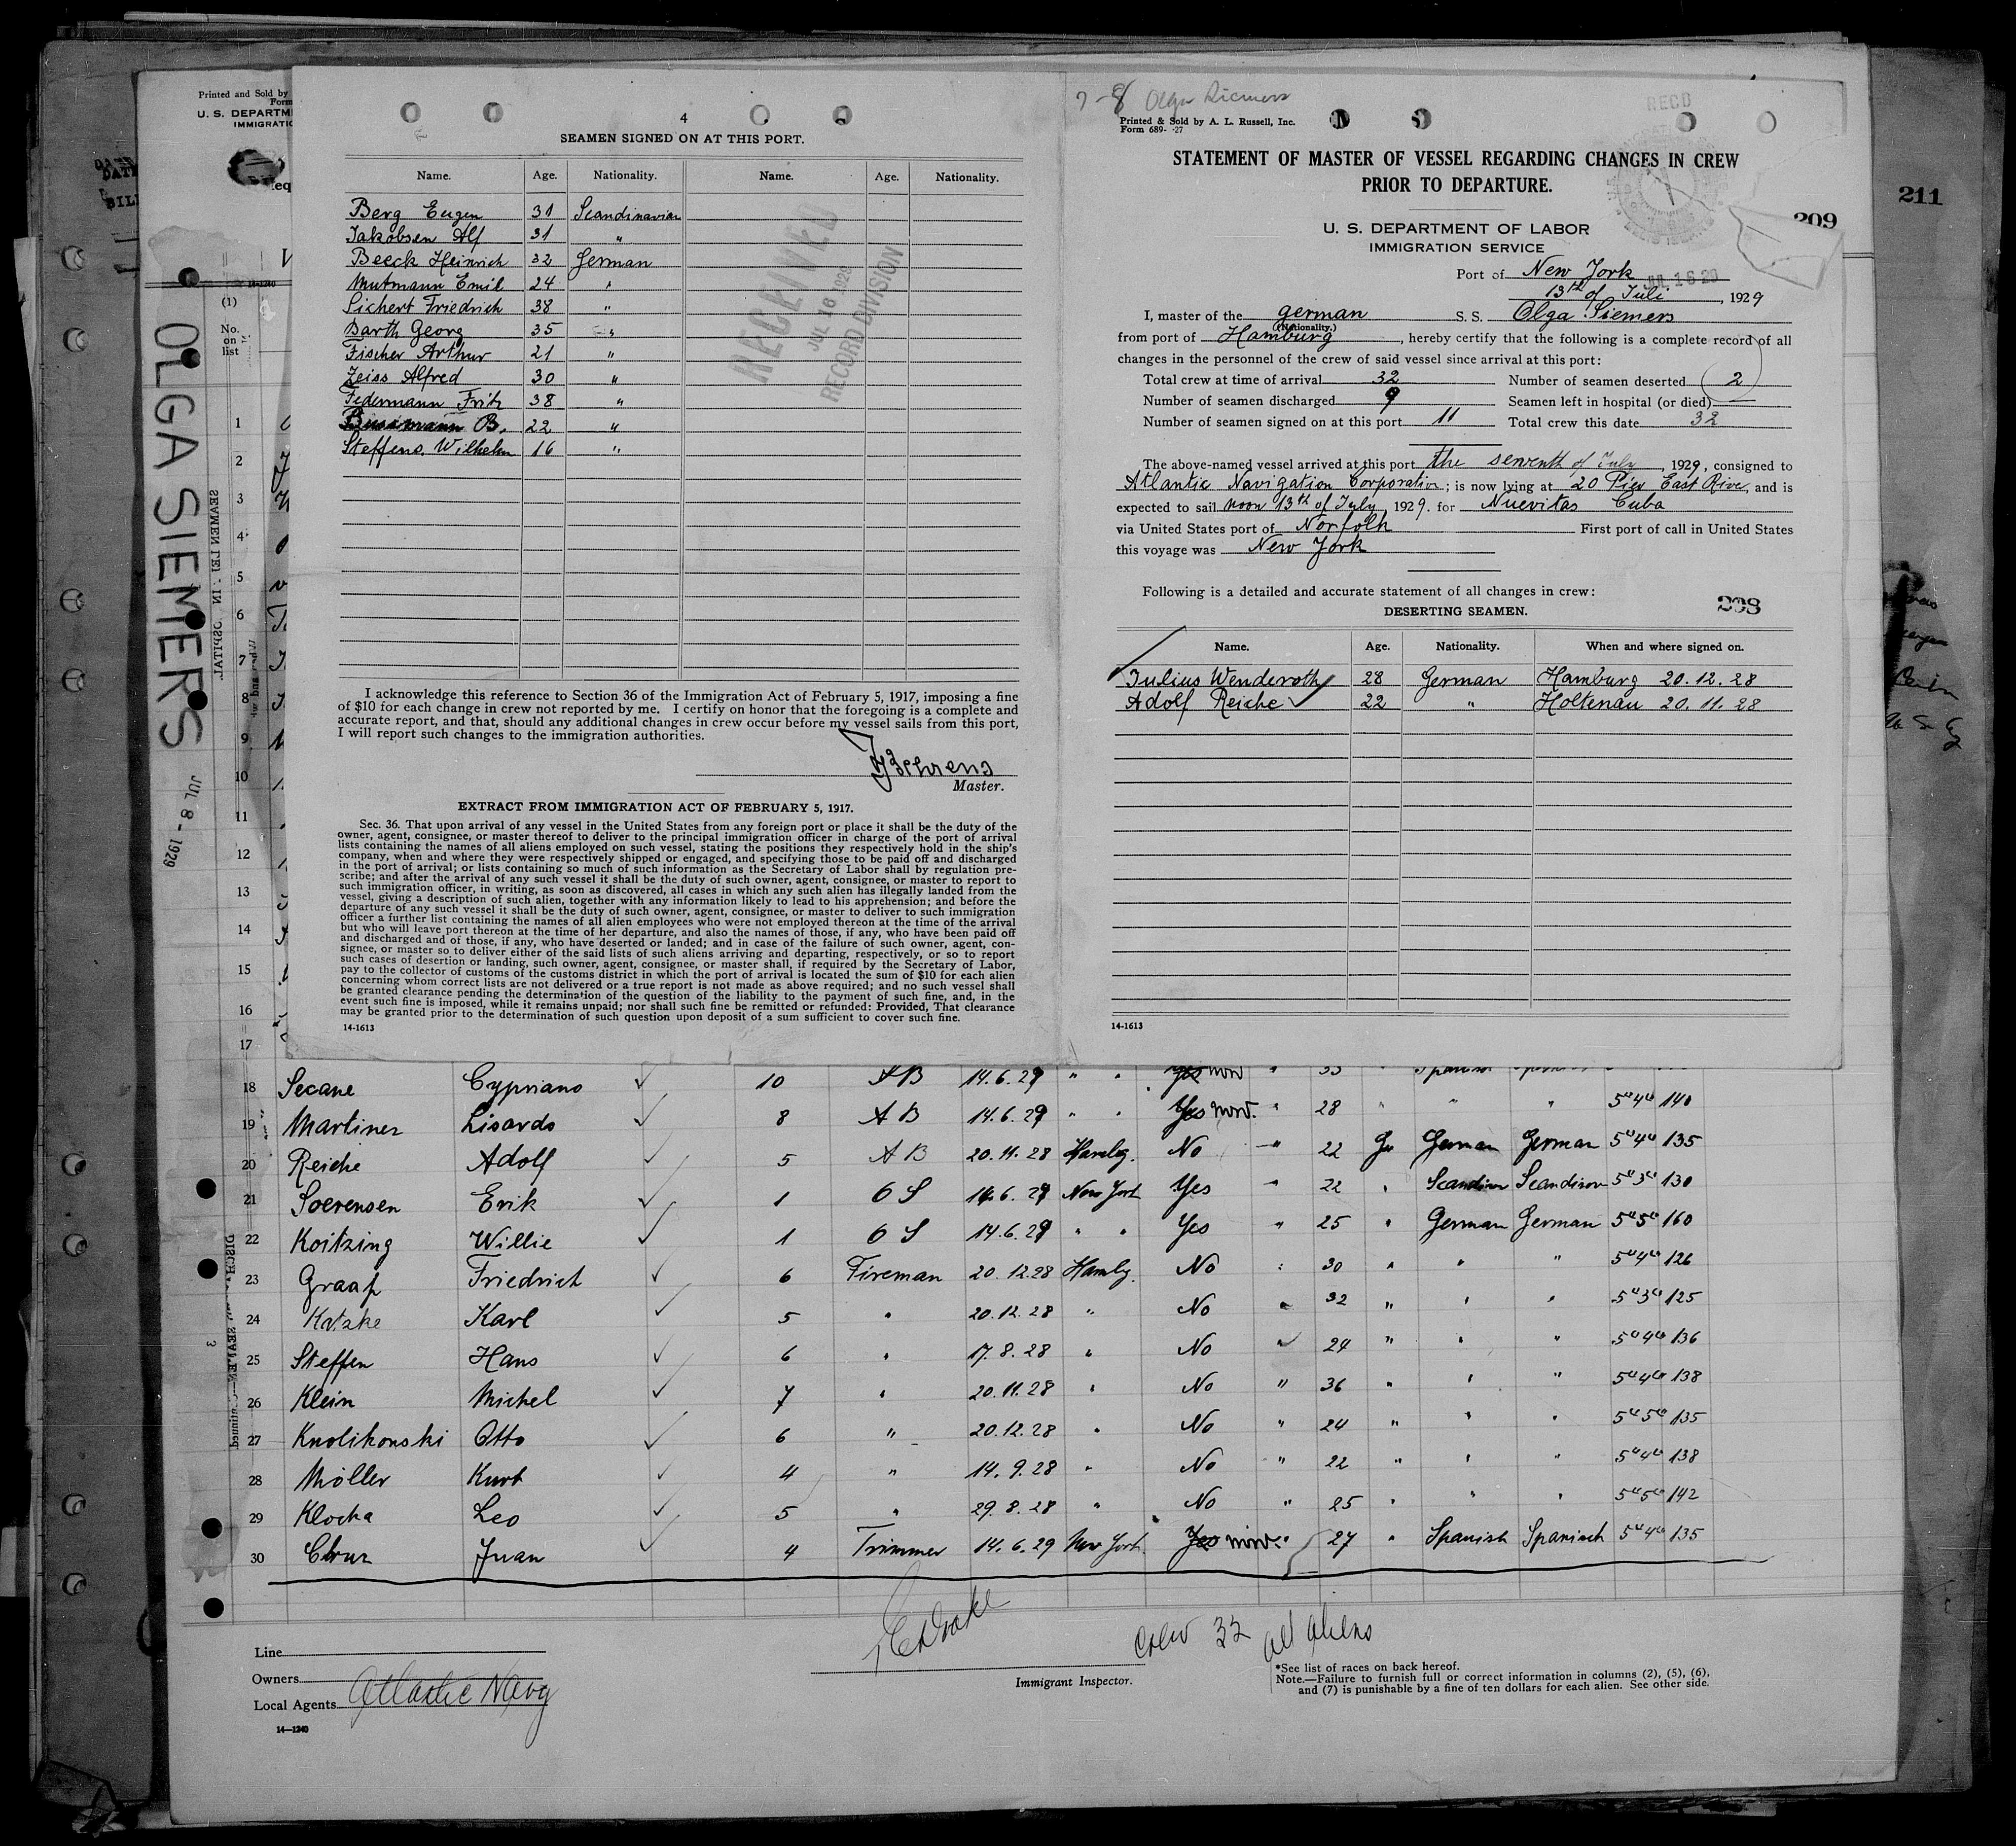 4
SEAMEN SIGNED ON AT THIS PORT.
Name. Age. Nationality. Name. Age. Nationality.
Berg Eugen 31 Scandinavian
Jakobsen Alf 31 "
Beeck Heinrich 32 German
Mutmann Emil 24 "
Sichert Friedrich 38 "
Barth Georg 35 "
Fischer Arthur 21 "
Zeiss Alfred 30 "
Federmann Fritz 38 "
B. 22 "
Steffens Wilhelm 16 "
RECEIVED
JUL 16 1929
RECORD DIVISION
I acknowledge this reference to Section 36 of the Immigration Act of February 5, 1917, imposing a fine
of $10 for each change in crew not reported by me. I certify on honor that the foregoing is a complete and
accurate report, and that, should any additional changes in crew occur before my vessel sails from this port,
I will report such changes to the immigration authorities.
Behrens
Master.
EXTRACT FROM IMMIGRATION ACT OF FEBRUARY 5, 1917.
Sec. 36. That upon arrival of any vessel in the United States from any foreign port or place it shall be the duty of the
owner, agent, consignee, or master thereof to deliver to the principal immigration officer in charge of the port of arrival
lists containing the names of all aliens employed on such vessel, stating the positions they respectively hold in the ship's
company, when and where they were respectively shipped or engaged, and specifying those to be paid off and discharged
in the port of arrival; or lists containing so much of such information as the Secretary of Labor shall by regulation pre-
scribe; and after the arrival of any such vessel it shall be the duty of such owner, agent, consignee, or master to report to
such immigration officer, in writing, as soon as discovered, all cases in which any such alien has illegally landed from the
vessel, giving a description of such alien, together with any information likely to lead to his apprehension; and before the
departure of any such vessel it shall be the duty of such owner, agent, consignee, or master to deliver to such immigration
officer a further list containing the names of all alien employees who were not employed thereon at the time of the arrival
but who will leave port thereon at the time of her departure, and also the names of those, if any, who have been paid off
and discharged and of those, if any, who have deserted or landed; and in case of the failure of such owner, agent, con-
signee, or master so to deliver either of the said lists of such aliens arriving and departing, respectively, or so to report
such cases of desertion or landing, such owner, agent, consignee, or master shall, if required by the Secretary of Labor,
pay to the collector of customs of the customs district in which the port of arrival is located the sum of $10 for each alien
concerning whom correct lists are not delivered or a true report is not made as above required; and no such vessel shall
be granted clearance pending the determination of the question of the liability to the payment of such fine, and, in the
event such fine is imposed, while it remains unpaid; nor shall such fine be remitted or refunded: Provided, That clearance
may be granted prior to the determination of such question upon deposit of a sum sufficient to cover such fine.
14-1613
7-8 Olga Siemers
Printed & Sold by A. L. Russell, Inc.
Form 689- -27
RECD
STATEMENT OF MASTER OF VESSEL REGARDING CHANGES IN CREW
PRIOR TO DEPARTURE.
209
211
U. S. DEPARTMENT OF LABOR
IMMIGRATION SERVICE
Port of New York
JUL 16 29
13th of Juli, 1929
I, master of the german S. S. Olga Siemers
(Nationality.)
from port of Hamburg, hereby certify that the following is a complete record of all
changes in the personnel of the crew of said vessel since arrival at this port:
Total crew at time of arrival 32 Number of seamen deserted 2
Number of seamen discharged 9 Seamen left in hospital (or died) —
Number of seamen signed on at this port 11 Total crew this date 32
The above-named vessel arrived at this port the seventh of July, 1929, consigned to
Atlantic Navigation Corporation; is now lying at 20 Pier East River, and is
expected to sail noon 13th of July, 1929. for Nuevitas Cuba
via United States port of Norfolk First port of call in United States
this voyage was New York
Following is a detailed and accurate statement of all changes in crew:
208
DESERTING SEAMEN.
Name. Age. Nationality. When and where signed on.
Julius Wenderoth 28 German Hamburg 20.12.28
Adolf Reiche 22 " Holtenau 20.11.28
14-1613
Printed and Sold by
Form
U. S. DEPARTM
IMMIGRATIO
14-1240
(1)
No.
on
list
OLGA SIEMERS
JUL 8 - 1929
1
2
3
4
5
6
7
8
9
10
11
12
13
14
15
16
17
18 Secane Cypriano 10 AB 14.6.29 " " Yes now " 33
19 Martinez Lisardo 8 AB 14.6.29 " " Yes now. " 28 " " " 5"4" 140
20 Reiche Adolf 5 AB 20.11.28 Hambg. No " 22 Ge German German 5"4" 135
21 Soerensen Erik 1 OS 14.6.29 New York Yes " 22 " Scandinav Scandinav 5"3" 130
22 Koitzing Willie 1 OS 14.6.29 " " Yes " 25 " German German 5"5" 160
23 Graap Friedrich 6 Fireman 20.12.28 Hambg. No " 30 " " " 5"4" 126
24 Katzke Karl 5 " 20.12.28 " No " 32 " " " 5"3" 125
25 Steffen Hans 6 " 17.8.28 " No 24 " " " 5"4" 136
26 Klein Michel 7 " 20.11.28 " No " 36 " " " 5"4" 138
27 Knolikonski Otto 6 " 20.12.28 " No " 24 " " " 5"5" 135
28 Möller Kurt 4 " 14.9.28 " No " 22 " " " 5"4" 138
29 Klocka Leo 5 " 29.8.28 " No " 25 " " " 5"5" 142
30 Cruz Juan 4 Trimmer 14.6.29 New York. Yes now. " 27 " Spanish Spanish 5"4" 135
Line
Owners
Local Agents Atlantic Navg
14—1240
Immigrant Inspector.
Crew 32 all aliens
*See list of races on back hereof.
Note.—Failure to furnish full or correct information in columns (2), (5), (6),
and (7) is punishable by a fine of ten dollars for each alien. See other side.